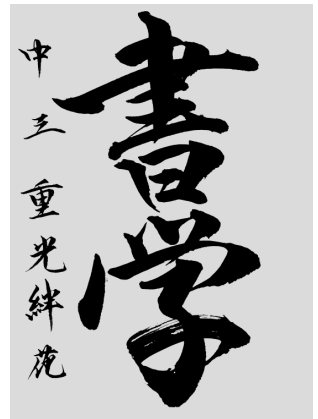 書学
中三 重光絆苑